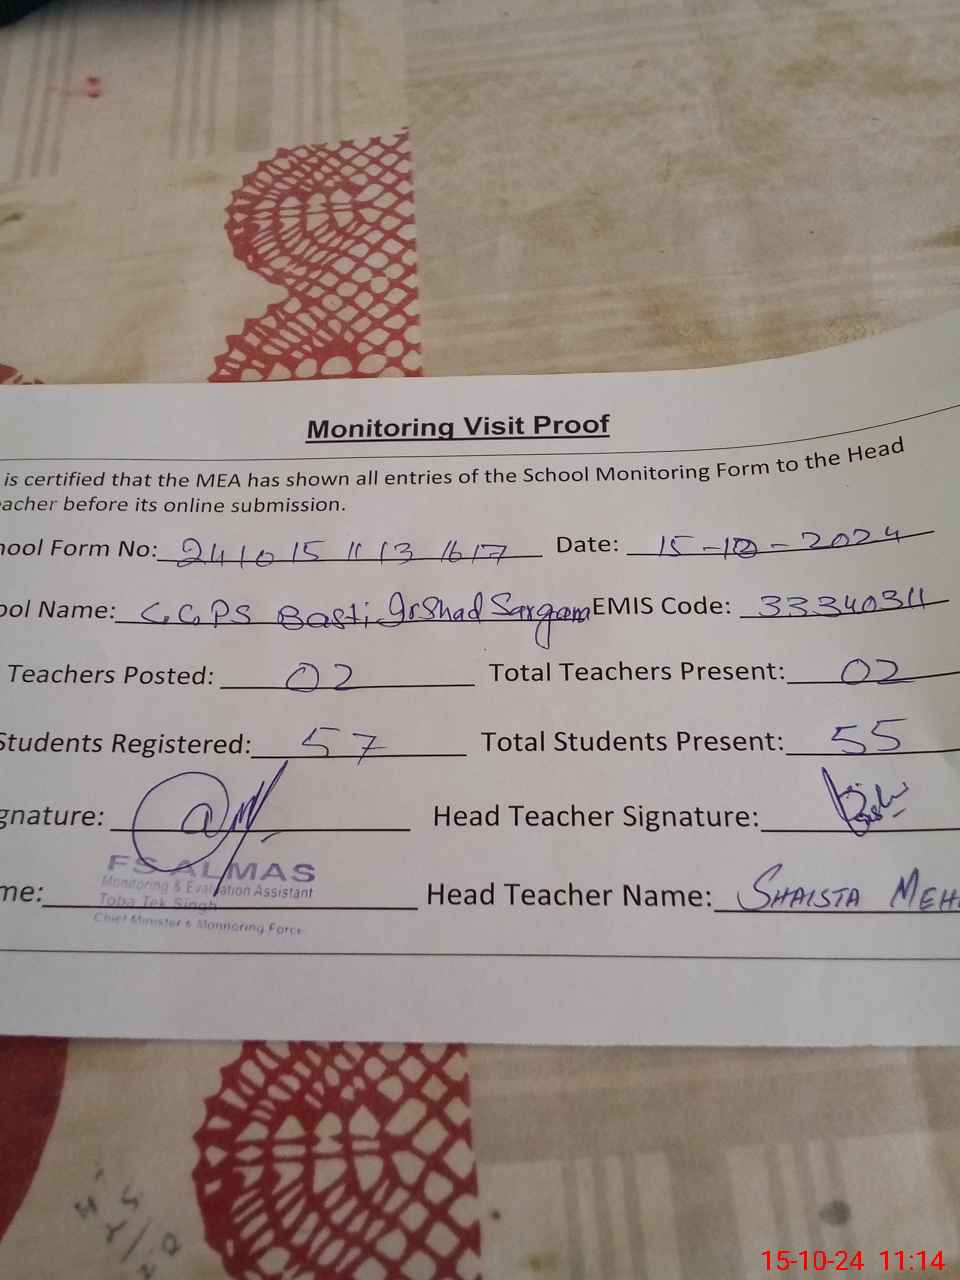 Monitoring Visit Proof
is certified that the MEA has shown all entries of the School Monitoring Form to the Head
eacher before its online submission.
hool Form No: 241015 11 13 1617 Date: 15-10-2024
ool Name: G.G.PS Basti Irshad Sargana EMIS Code: 33340311
Teachers Posted: 02 Total Teachers Present: 02
Students Registered: 57 Total Students Present: 55
gnature: Head Teacher Signature:
me: FS ALMAS Head Teacher Name: SHAISTA MEH
Monitoring & Evaluation Assistant
Toba Tek Singh
Chief Minister's Monitoring Force
15-10-24 11:14